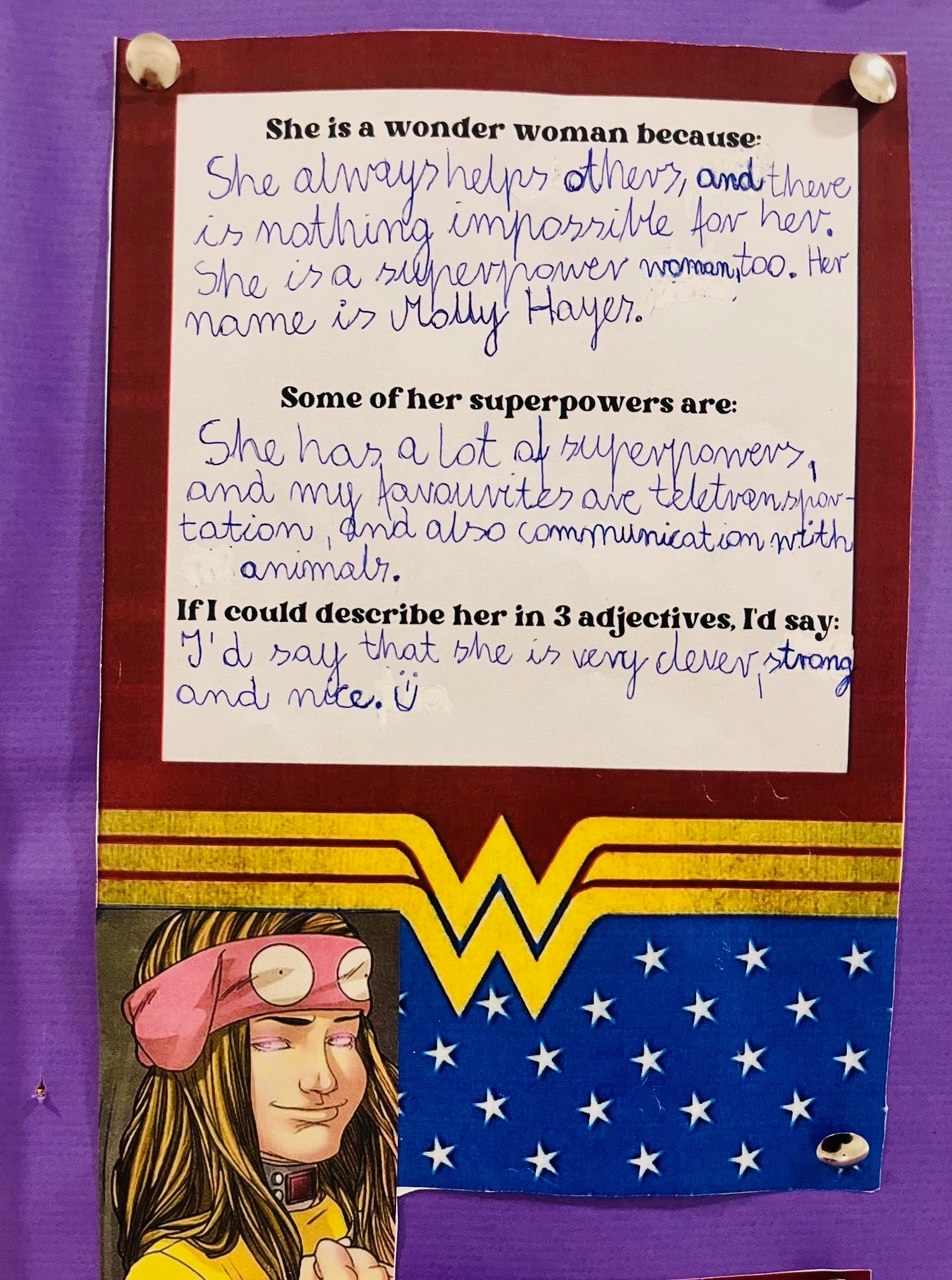 She is a wonder woman because:
She always helps others, and there
is nothing impossible for her.
She is a superpower woman, too. Her
name is Molly Hayes.
Some of her superpowers are:
She has a lot of superpowers,
and my favourites are teletranspor-
tation, and also communication with
animals.
If I could describe her in 3 adjectives, I'd say:
I'd say that she is very clever, strong
and nice.
W